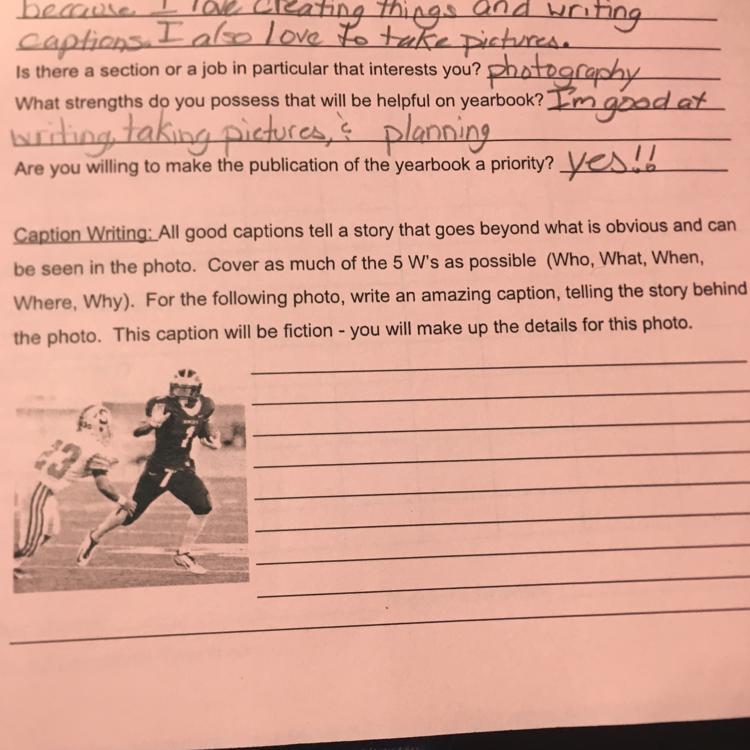 because I love creating things and writing
captions. I also love to take pictures.
Is there a section or a job in particular that interests you? photography
What strengths do you possess that will be helpful on yearbook? I'm good at
writing, taking pictures, & planning
Are you willing to make the publication of the yearbook a priority? yes!!
Caption Writing: All good captions tell a story that goes beyond what is obvious and can
be seen in the photo. Cover as much of the 5 W's as possible (Who, What, When,
Where, Why). For the following photo, write an amazing caption, telling the story behind
the photo. This caption will be fiction - you will make up the details for this photo.
23
1